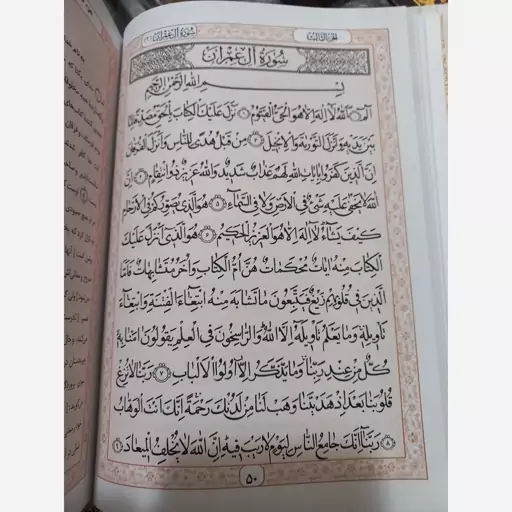 الجزء الثالث
سورة آل عمران (٣)
سورة آل عمران
بسم الله الرحمن الرحيم
الم ﴿١﴾ الله لا إله إلا هو الحي القيوم ﴿٢﴾ نزل عليك الكتاب بالحق مصدقا لما
بين يديه وأنزل التورية والإنجيل ﴿٣﴾ من قبل هدى للناس وأنزل الفرقان
إن الذين كفروا بآيات الله لهم عذاب شديد والله عزيز ذو انتقام ﴿٤﴾ إن
الله لا يخفى عليه شيء في الأرض ولا في السماء ﴿٥﴾ هو الذي يصوركم في الأرحام
كيف يشاء لا إله إلا هو العزيز الحكيم ﴿٦﴾ هو الذي أنزل عليك
الكتاب منه آيات محكمات هن أم الكتاب وأخر متشابهات فأما
الذين في قلوبهم زيغ فيتبعون ما تشابه منه ابتغاء الفتنة وابتغاء
تأويله وما يعلم تأويله إلا الله والراسخون في العلم يقولون آمنا به
كل من عند ربنا وما يذكر إلا أولوا الألباب ﴿٧﴾ ربنا لا تزغ
قلوبنا بعد إذ هديتنا وهب لنا من لدنك رحمة إنك أنت الوهاب
﴿٨﴾ ربنا إنك جامع الناس ليوم لا ريب فيه إن الله لا يخلف الميعاد ﴿٩﴾
٥٠